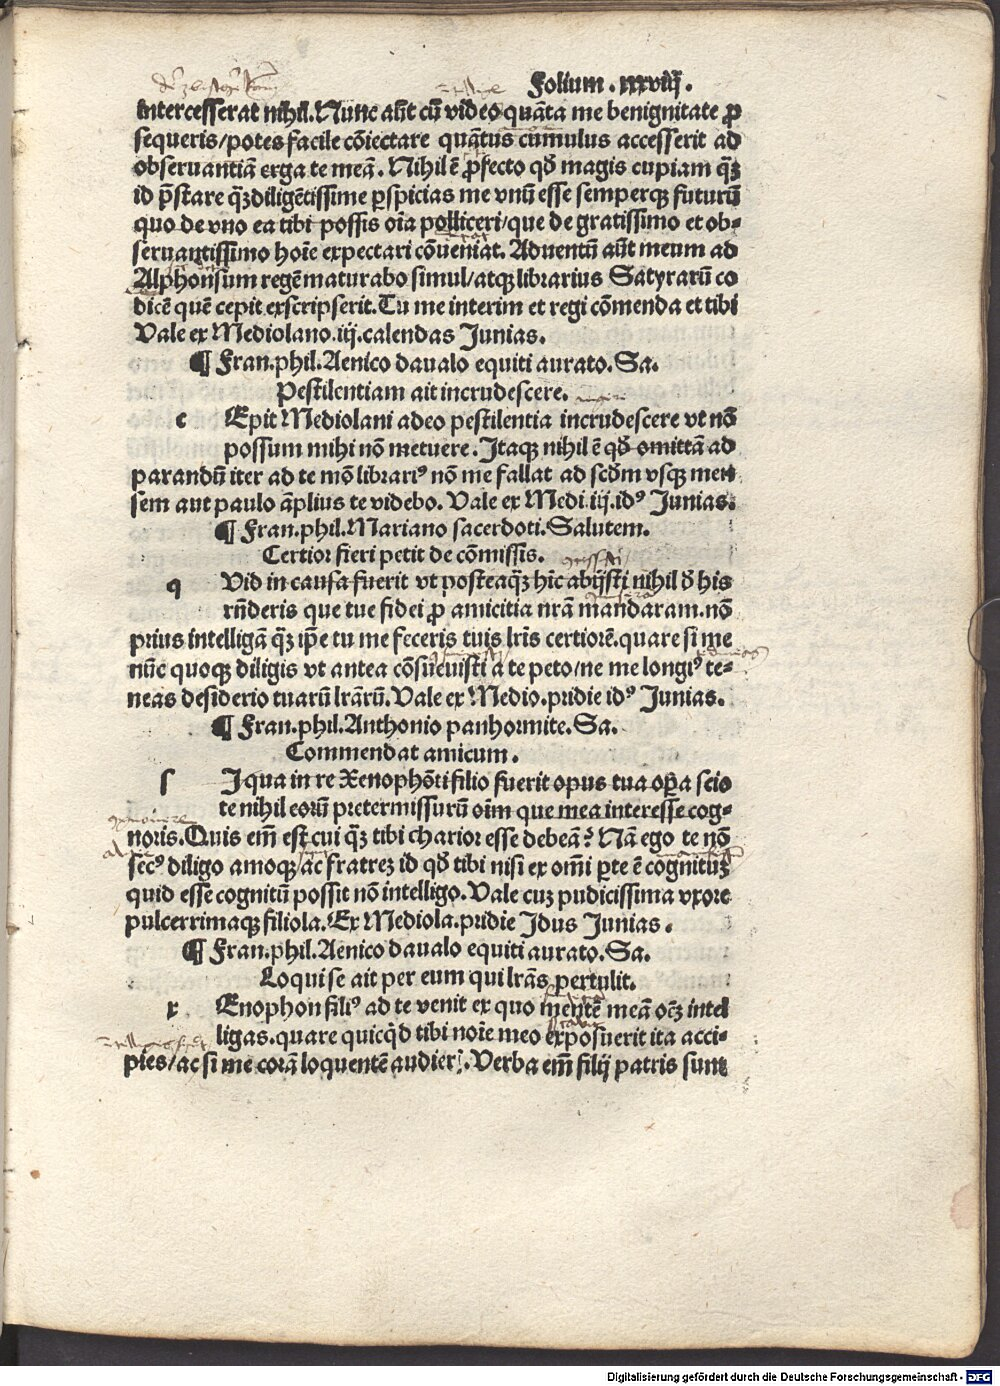 Folium . xxxviij .
intercesserat nihil. Nunc aūt cū video quāta me benignitate ꝓ
sequeris/potes facile cōiectare quātus cumulus accesserit ad
obseruantiā erga te meā. Nihil ē ꝓfecto qđ magis cupiam q̄ꝫ
id p̄stare q̄ꝫ diligētissime ꝑspicias me vnū esse semperqꝫ futurū
quo de vno ea tibi possis oīa polliceri/que de gratissimo et ob⸗
seruantissimo hoīe expectari cōueniat. Aduentū aūt meum ad
Alphonsum regē maturabo simul/atqꝫ librarius Satyrarū co
dicē quē cepit exscripserit. Tu me interim et regi cōmenda et tibi
Vale ex Mediolano. iij. calendas Junias.
¶ Fran. phil. Aenico daualo equiti aurato. Sa.
Pestilentiam ait incrudescere.
c Epit Mediolani adeo pestilentia incrudescere vt nō
possum mihi nō metuere. Itaqꝫ nihil ē qđ omittā ad
parandū iter ad te mō librariꝰ nō me fallat ad scđm vsqꝫ men
sem aut paulo āplius te videbo. Vale ex Medi. iij. idꝰ Junias.
¶ Fran. phil. Mariano sacerdoti. Salutem.
Certior fieri petit de cōmissis.
q Vid in causa fuerit vt posteaq̄ꝫ hīc abijsti nihil đ his
rn̄deris que tue fidei ꝓ amicitia nrā mandaram. nō
prius intelligā q̄ꝫ ip̄e tu me feceris tuis lrīs certiorē. quare si me
nūc quoqꝫ diligis vt antea cōsueuisti a te peto/ne me longiꝰ te⸗
neas desiderio tuarū lrārū. Vale ex Medio. pridie idꝰ Junias.
¶ Fran. phil. Anthonio panhormite. Sa.
Commendat amicum.
s Iqua in re Xenophōti filio fuerit opus tua oꝑa scio
te nihil eorū pretermissurū oīm que mea interesse cog⸗
noris. Quis em̄ est cui q̄ꝫ tibi charior esse debeā? Nā ego te nō
secꝰ diligo amoqꝫ ac fratreꝫ id qđ tibi nisi ex om̄i ꝑte ē cognituꝫ
quid esse cognitū possit nō intelligo. Vale cuꝫ pudicissima vxore
pulcerrimaqꝫ filiola. Ex Mediola. pridie Idus Junias.
¶ Fran. phil. Aenico daualo equiti aurato. Sa.
Loqui se ait per eum qui lrās pertulit.
x Enophon filiꝰ ad te venit ex quo mentē meā oēꝫ intel
ligas. quare quicq̇d tibi noīe meo exposuerit ita acci⸗
pies/ac si me corā loquentē audier. Verba em̄ filij patris sunt
Digitalisierung gefördert durch die Deutsche Forschungsgemeinschaft - DFG